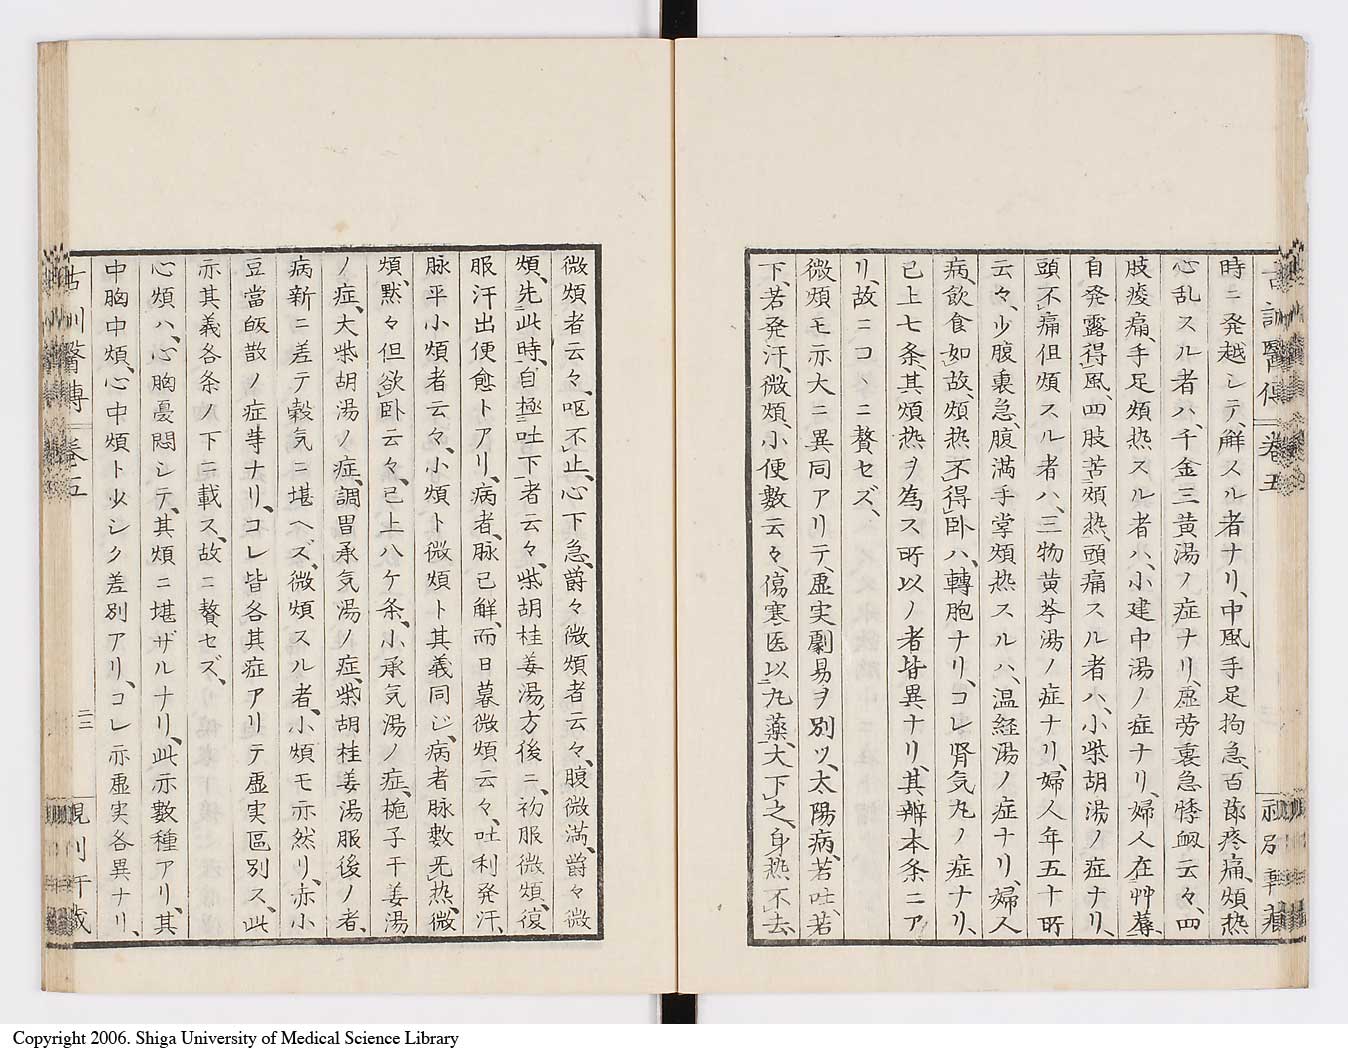 時ニ発越シテ、解スル者ナリ、中風手足拘急、百節疼痛、煩熱
心乱スル者ハ、千金三黄湯ノ症ナリ、虚劳裏急悸衂云々、四
肢痠痛、手足煩熱スル者ハ、小建中湯ノ症ナリ、婦人在艸蓐、
自発露得風、四肢苦煩熱、頭痛スル者ハ、小柴胡湯ノ症ナリ、
頭不痛但煩スル者ハ、三物黄芩湯ノ症ナリ、婦人年五十所
云々、少腹裏急、腹満手掌煩熱スルハ、温経湯ノ症ナリ、婦人
病、飲食如故、煩熱不得卧ハ、轉胞ナリ、コレ腎気丸ノ症ナリ、
已上七条、其煩熱ヲ為ス所以ノ者皆異ナリ、其辨本条ニア
リ、故ニコヽニ贅セズ、
微煩モ亦大ニ異同アリテ、虚実劇易ヲ別ツ、太陽病、若吐、若
下、若発汗、微煩、小便數云々、傷寒医以丸薬、大下之、身熱不去、
微煩者云々、呕不止、心下急、欝々微煩者云々、腹微満、欝々微
煩、先此時、自極吐下者云々、柴胡桂姜湯方後ニ、初服微煩、復
服汗出便愈トアリ、病者、脉已解、而日暮微煩云々、吐利発汗、
脉平小煩者云々、小煩ト微煩ト其義同じ、病者脉數无熱、微
煩、黙々但欲卧云々、已上八ケ条、小承気湯ノ症、梔子干姜湯
ノ症、大柴胡湯ノ症、調胃承気湯ノ症、柴胡桂姜湯服後ノ者、
病新ニ差テ穀気ニ堪ヘズ、微煩スル者、小煩モ亦然リ、赤小
豆當皈散ノ症等ナリ、コレ皆各其症アリテ虚実區別ス、此
亦其義各条ノ下ニ載ス、故ニ贅セズ、
心煩ハ、心胸憂悶シテ、其煩ニ堪ザルナリ、此亦數種アリ、其
中胸中煩、心中煩ト少シク差別アリ、コレ亦虚実各異ナリ、
古訓醫傳 巻五